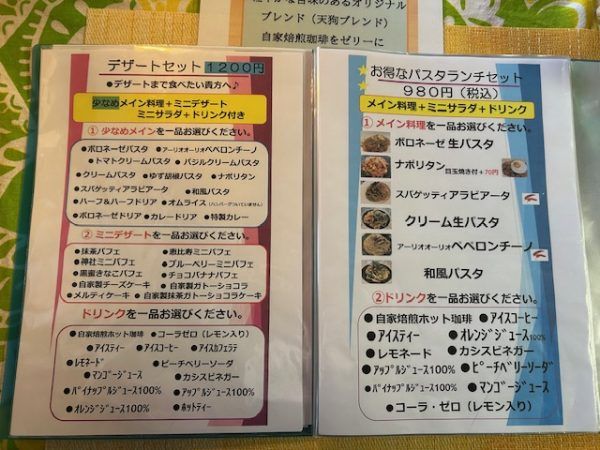 ブレンド（天狗ブレンド）
自家焙煎珈琲をゼリーに
デザートセット 1200円
●デザートまで食べたい貴方へ♪
少なめメイン料理＋ミニデザート
ミニサラダ＋ドリンク付き
①少なめメインを一品お選びください。
●ボロネーゼパスタ ●アーリオオーリオペペロンチーノ
●トマトクリームパスタ ●バジルクリームパスタ
●クリームパスタ ●ゆず胡椒パスタ ●ナポリタン
●スパゲッティアラビアータ ●和風パスタ
●ハーフ＆ハーフドリア ●オムライス（ハンバーグついていません）
●ボロネーゼドリア ●カレードリア ●特製カレー
②ミニデザートを一品お選びください。
●抹茶パフェ ●恵比寿ミニパフェ
●神社ミニパフェ ●ブルーベリーミニパフェ
●黒蜜きなこパフェ ●チョコバナナパフェ
●自家製チーズケーキ ●自家製ガトーショコラ
●メルティケーキ ●自家製抹茶ガトーショコラケーキ
ドリンクを一品お選びください。
●自家焙煎ホット珈琲 ●コーラゼロ（レモン入り）
●アイスティー ●アイスコーヒー ●アイスカフェラテ
●レモネード ●ピーチベリーソーダ
●マンゴージュース ●カシスビネガー
●パイナップルジュース100% ●アップルジュース100%
●オレンジジュース100% ●ホットティー
お得なパスタランチセット
980円（税込）
メイン料理＋ミニサラダ＋ドリンク
①メイン料理を一品お選びください。
ボロネーゼ 生パスタ
ナポリタン 目玉焼き付＋70円
スパゲッティアラビアータ
クリーム生パスタ
アーリオオーリオペペロンチーノ
和風パスタ
②ドリンクを一品お選びください。
●自家焙煎ホット珈琲 ●アイスコーヒー
●アイスティー ●オレンジジュース100%
●レモネード ●カシスビネガー
●アップルジュース100% ●ピーチベリーソーダ
●パイナップルジュース100% ●マンゴージュース
●コーラ・ゼロ（レモン入り）